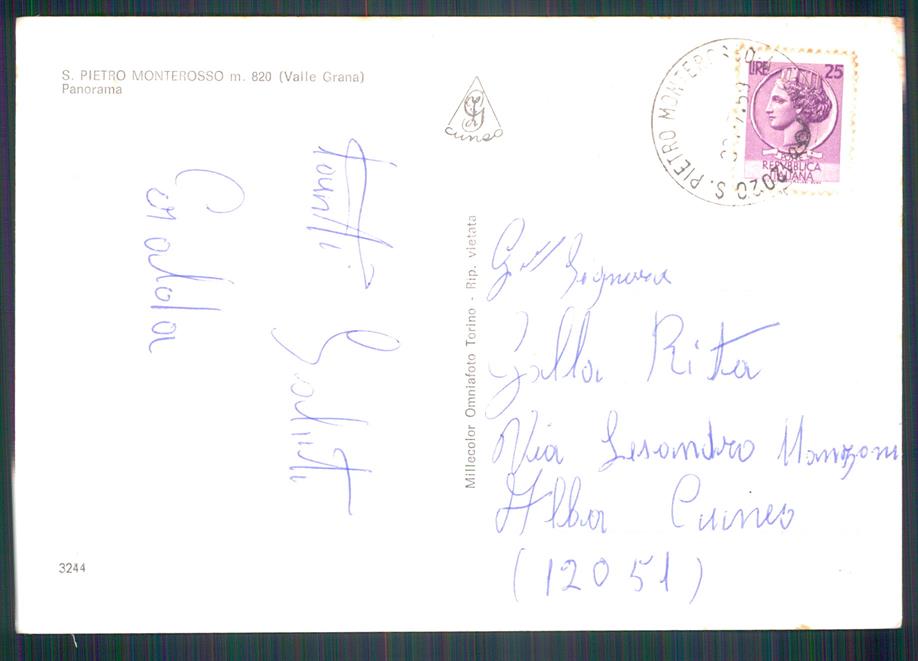 S. PIETRO MONTEROSSO m. 820 (Valle Grana)
Panorama
cuneo
LIRE 25
POSTE
REPVBBLICA
ITALIANA
S. PIETRO MONTEROSSO
tanti Saluti
Millecolor Omniafoto Torino - Rip. vietata
Signora
Galla Rita
Via Lesandro Manzoni
Alba Cuneo
(12051)
3244